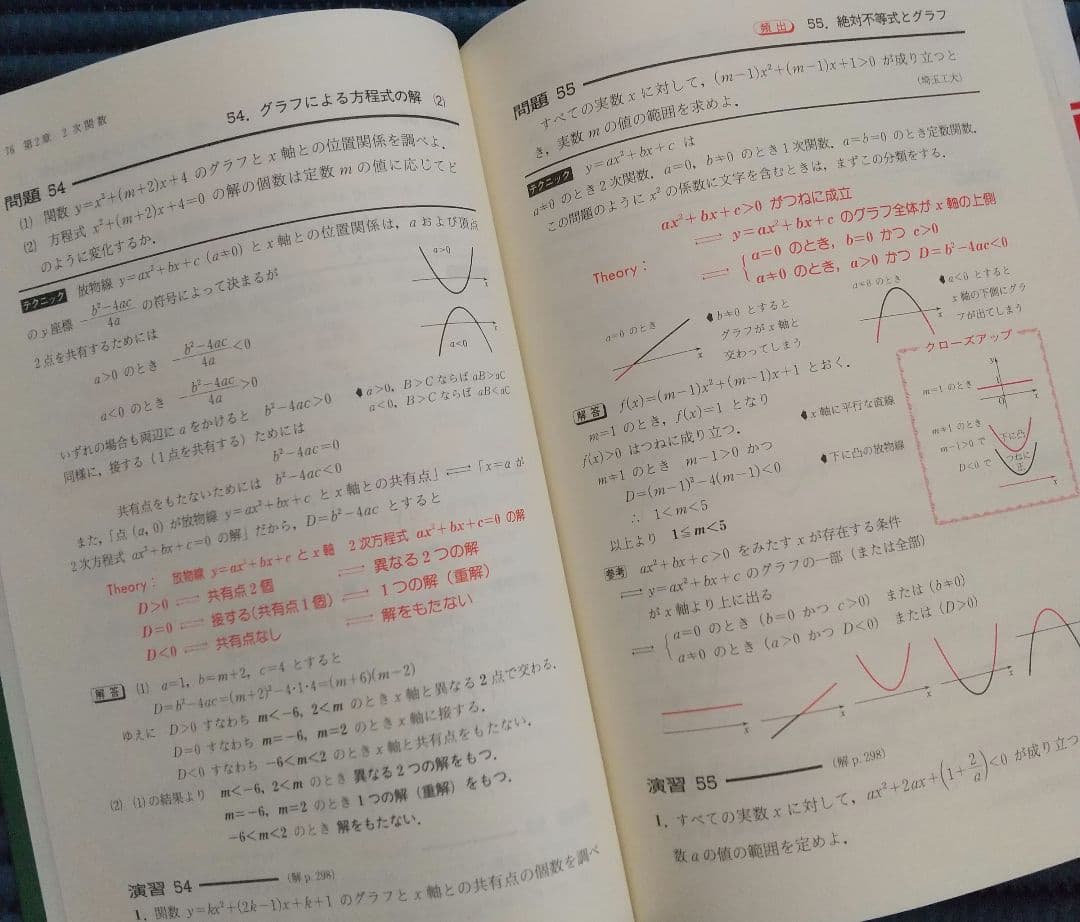 76 第2章 2次関数
54．グラフによる方程式の解 (2)
問題 54
(1) 関数 y=x²+(m+2)x+4 のグラフと x 軸との位置関係を調べよ．
(2) 方程式 x²+(m+2)x+4=0 の解の個数は定数 m の値に応じてど
のように変化するか．
テクニック 放物線 y=ax²+bx+c (a≠0) と x 軸との位置関係は，a および頂点
の y 座標 −(b²−4ac)/4a の符号によって決まるが
a>0
x
a<0
x
2点を共有するためには
a>0 のとき −(b²−4ac)/4a<0
a<0 のとき −(b²−4ac)/4a>0
いずれの場合も両辺に a をかけると b²−4ac>0
a>0，B>C ならば aB>aC
a<0，B>C ならば aB<aC
同様に，接する（1点を共有する）ためには
b²−4ac=0
共有点をもたないためには b²−4ac<0
また，「点 (α, 0) が放物線 y=ax²+bx+c と x 軸との共有点」⟺「x=α が
2次方程式 ax²+bx+c=0 の解」だから，D=b²−4ac とすると
Theory： 放物線 y=ax²+bx+c と x 軸 2次方程式 ax²+bx+c=0 の解
D>0 ⟺ 共有点2個 ⟺ 異なる2つの解
D=0 ⟺ 接する(共有点1個) ⟺ 1つの解（重解）
D<0 ⟺ 共有点なし ⟺ 解をもたない
解答 (1) a=1，b=m+2，c=4 とすると
D=b²−4ac=(m+2)²−4·1·4=(m+6)(m−2)
ゆえに D>0 すなわち m<−6，2<m のとき x 軸と異なる2点で交わる．
D=0 すなわち m=−6，m=2 のとき x 軸に接する．
D<0 すなわち −6<m<2 のとき x 軸と共有点をもたない．
(2) (1)の結果より m<−6，2<m のとき 異なる2つの解をもつ．
m=−6，m=2 のとき 1つの解（重解）をもつ．
−6<m<2 のとき 解をもたない．
演習 54 (解 p.298)
1．関数 y=kx²+(2k−1)x+k+1 のグラフと x 軸との共有点の個数を調べ
頻出 55．絶対不等式とグラフ
問題 55
すべての実数 x に対して，(m−1)x²+(m−1)x+1>0 が成り立つと
き，実数 m の値の範囲を求めよ． （埼玉工大）
テクニック y=ax²+bx+c は
a≠0 のとき2次関数．a=0，b≠0 のとき1次関数．a=b=0 のとき定数関数．
この問題のように x² の係数に文字を含むときは，まずこの分類をする．
Theory：
ax²+bx+c>0 がつねに成立
⟺ y=ax²+bx+c のグラフ全体が x 軸の上側
⟺ { a=0 のとき，b=0 かつ c>0
a≠0 のとき，a>0 かつ D=b²−4ac<0
a=0 のとき
x
b≠0 とすると
グラフが x 軸と
交わってしまう
a≠0 のとき
x
a<0 とすると
x 軸の下側にグラ
フが出てしまう
解答 f(x)=(m−1)x²+(m−1)x+1 とおく．
m=1 のとき，f(x)=1 となり
x 軸に平行な直線
f(x)>0 はつねに成り立つ．
m≠1 のとき m−1>0 かつ
下に凸の放物線
D=(m−1)²−4(m−1)<0
∴ 1<m<5
以上より 1≦m<5
クローズアップ
m=1 のとき
y
1
O
x
m≠1 のとき
m−1>0 で
D<0 で
下に凸
つねに
正
x
参考 ax²+bx+c>0 をみたす x が存在する条件
⟺ y=ax²+bx+c のグラフの一部（または全部）
が x 軸より上に出る
⟺ { a=0 のとき (b=0 かつ c>0) または (b≠0)
a≠0 のとき (a>0 かつ D<0) または (D>0)
x
x
x
x
演習 55 (解 p.298)
1．すべての実数 x に対して，ax²+2ax+(1+2/a)<0 が成り立つ
数 a の値の範囲を定めよ．